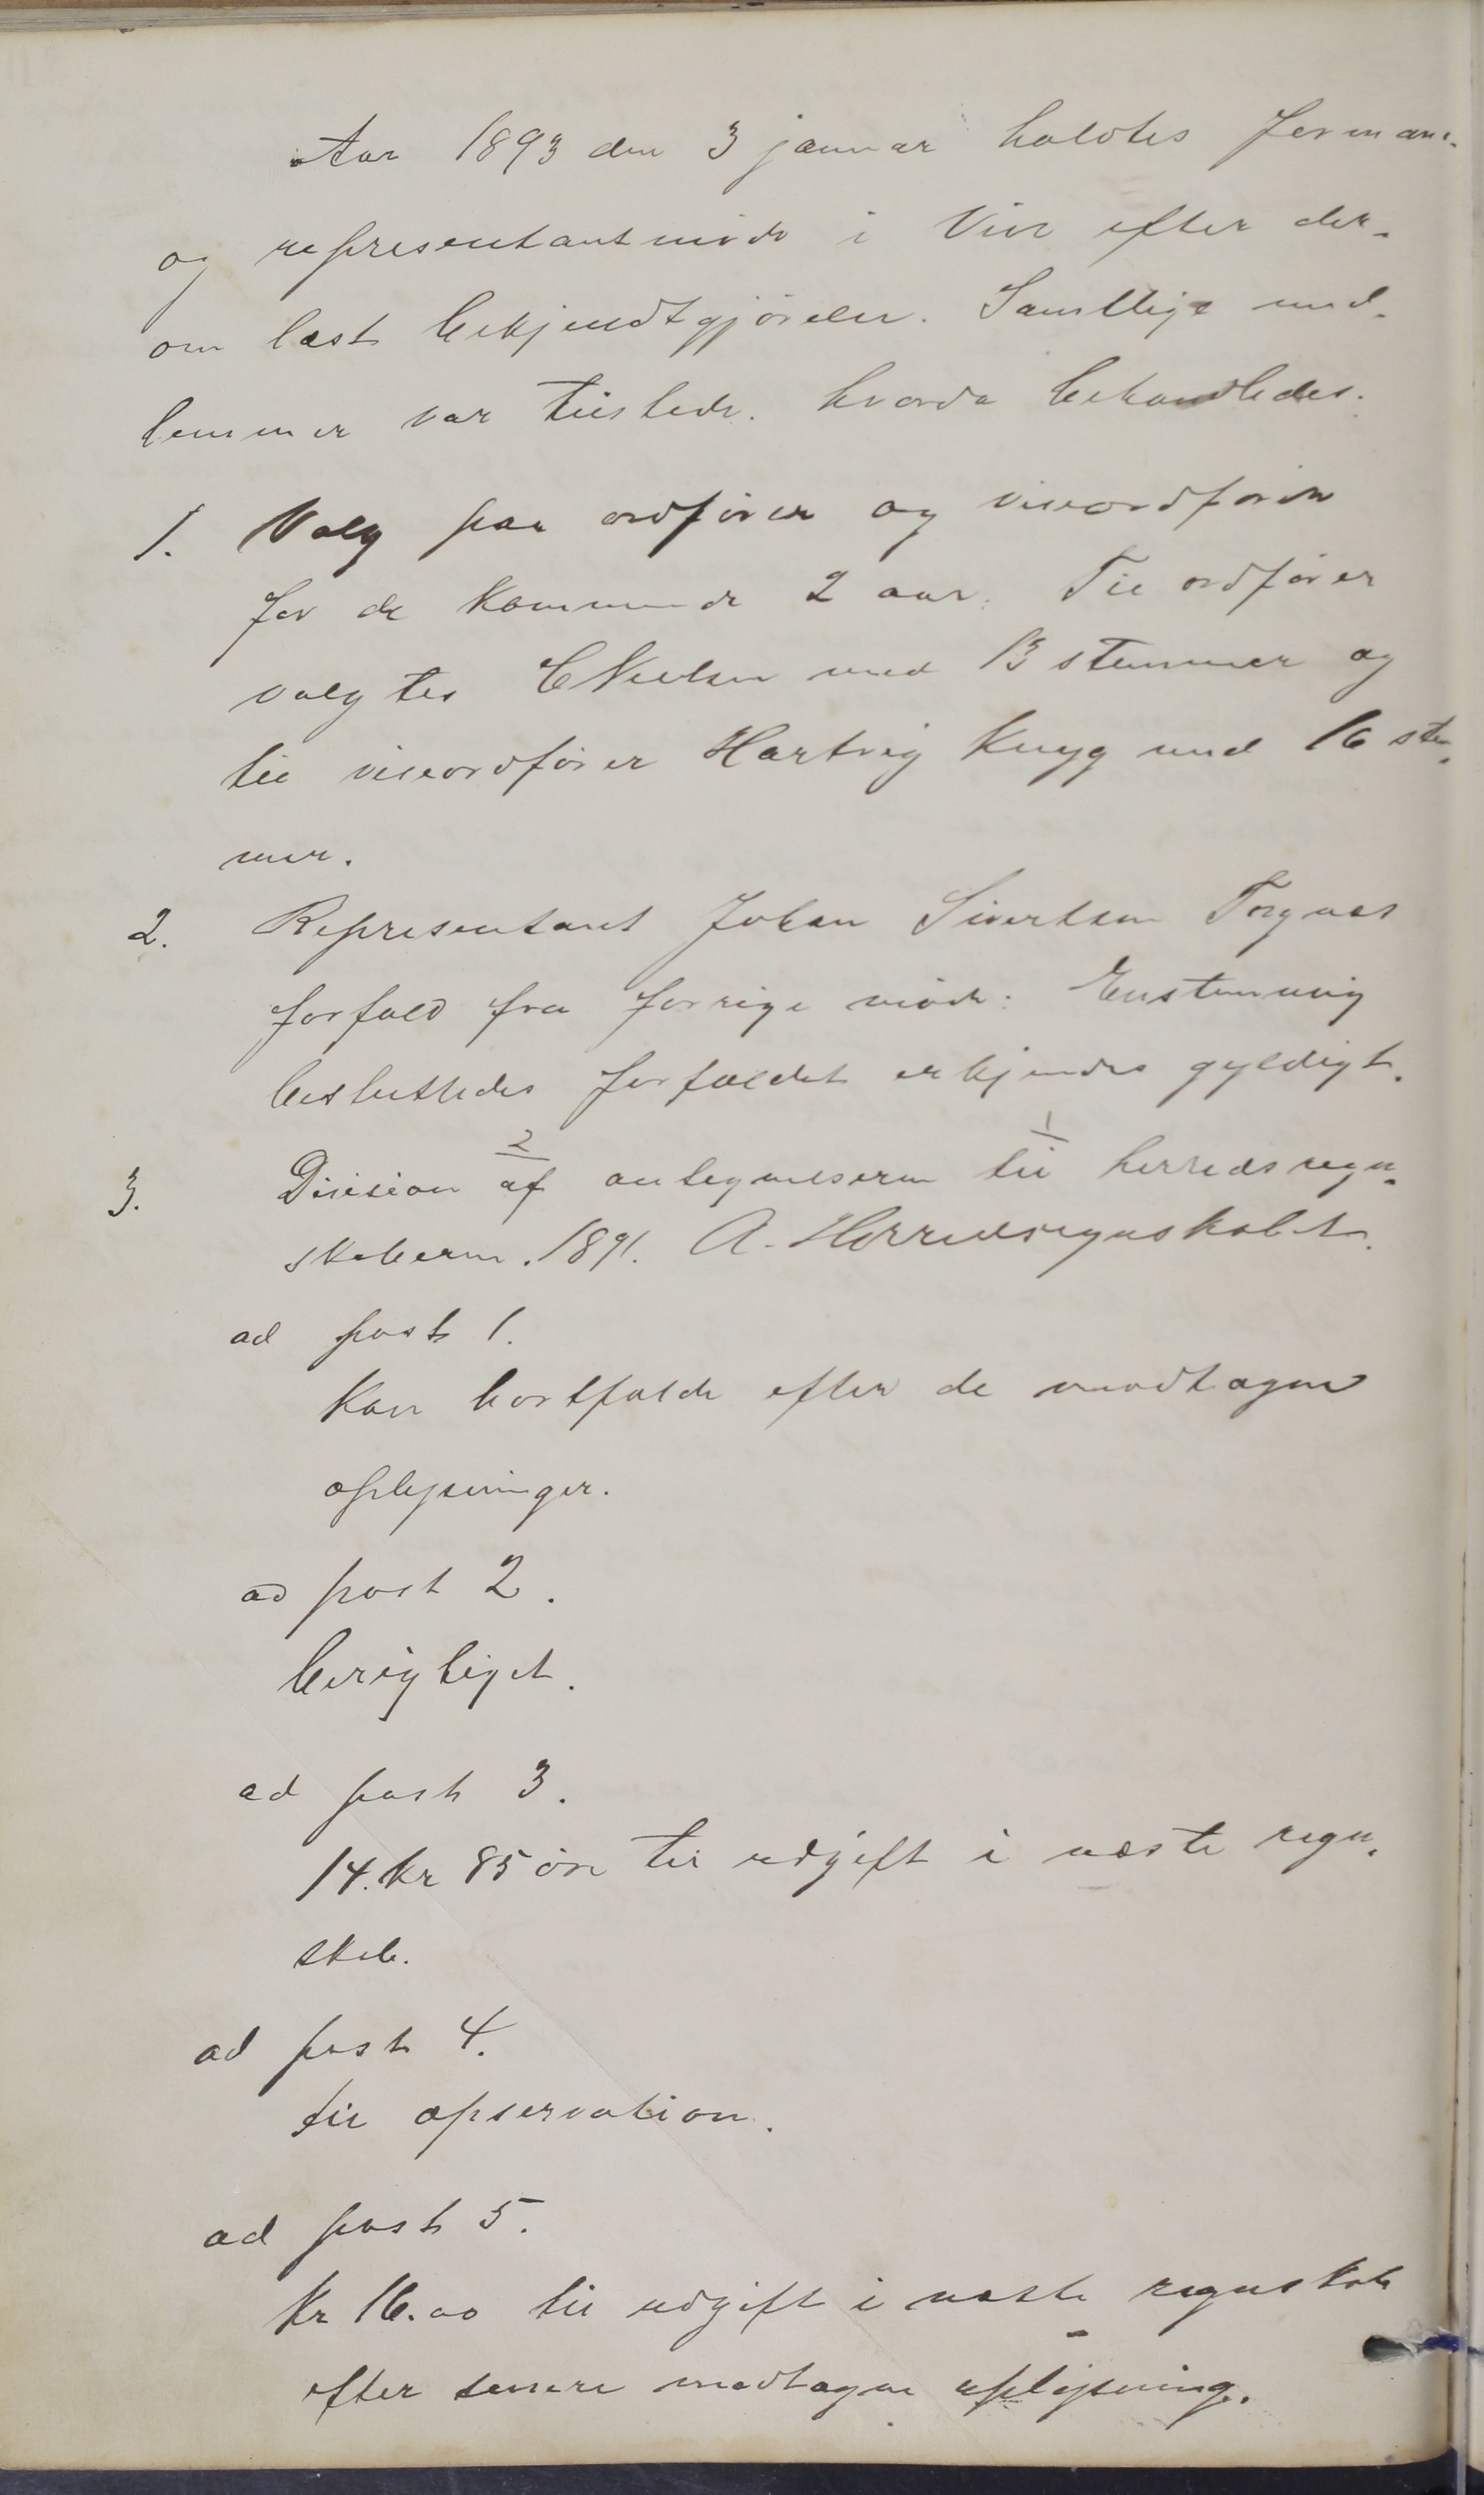 Aar 1893 den 3 januar holdtes formans-
og representantmøde i Vik efter der-
om læst bekjendtgjørelse. Samtlige med-
lemmer var tilstede. hvorda behandledes:
1. Valg paa ordfører og viseordfører
for de kommende 2 aar. Til ordfører
valgtes C Nielsen med 13 stemmer og
til viseordfører Hartvig Knyg med 16 stem-
mer.
2. Representant Johan Sivertsen Torgnes
forfald fra forrige møde: Enstemmig
besluttedes forfaldet erkjendes gyldigt.
3. Division af 2 antegnelserne til 1 herredsregn-
skaberne. 1891. A. Herredsregnskabet.
ad post 1.
Kan bortfalde efter de modtagne
oplysninger.
ad post 2.
berigtiget.
ad post 3.
14. kr 85 øre til udgift i næste regn-
skab.
ad post 4.
til opservation.
ad post 5.
Kr 16.00 til udgift i næste regnskab
efter senere modtagne oplysning.